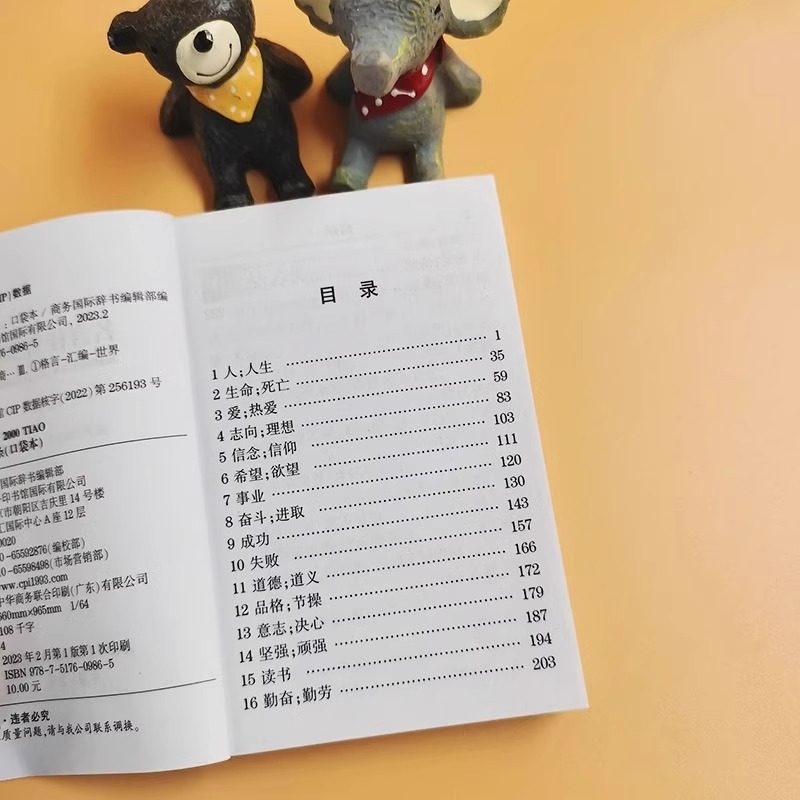 IP)数据
:口袋本/商务国际辞书编辑部编
书馆国际有限公司, 2023.2
76-0986-5
商… Ⅲ. ①格言-汇编-世界
馆CIP数据核字(2022)第256193号
2000 TIAO
条(口袋本)
国际辞书编辑部
印书馆国际有限公司
京市朝阳区吉庆里14号楼
汇国际中心A座12层
0020
0-65592876(编校部)
0-65598498(市场营销部)
www.cpi1993.com
中华商务联合印刷(广东)有限公司
660mm×965mm 1/64
108千字
4
2023年2月第1版第1次印刷
ISBN 978-7-5176-0986-5
10.00元
·违者必究
质量问题,请与我公司联系调换。
目 录
1 人;人生 …… 1
2 生命;死亡 …… 35
3 爱;热爱 …… 59
4 志向;理想 …… 83
5 信念;信仰 …… 103
6 希望;欲望 …… 111
7 事业 …… 120
8 奋斗;进取 …… 130
9 成功 …… 143
10 失败 …… 157
11 道德;道义 …… 166
12 品格;节操 …… 172
13 意志;决心 …… 179
14 坚强;顽强 …… 187
15 读书 …… 194
16 勤奋;勤劳 …… 203